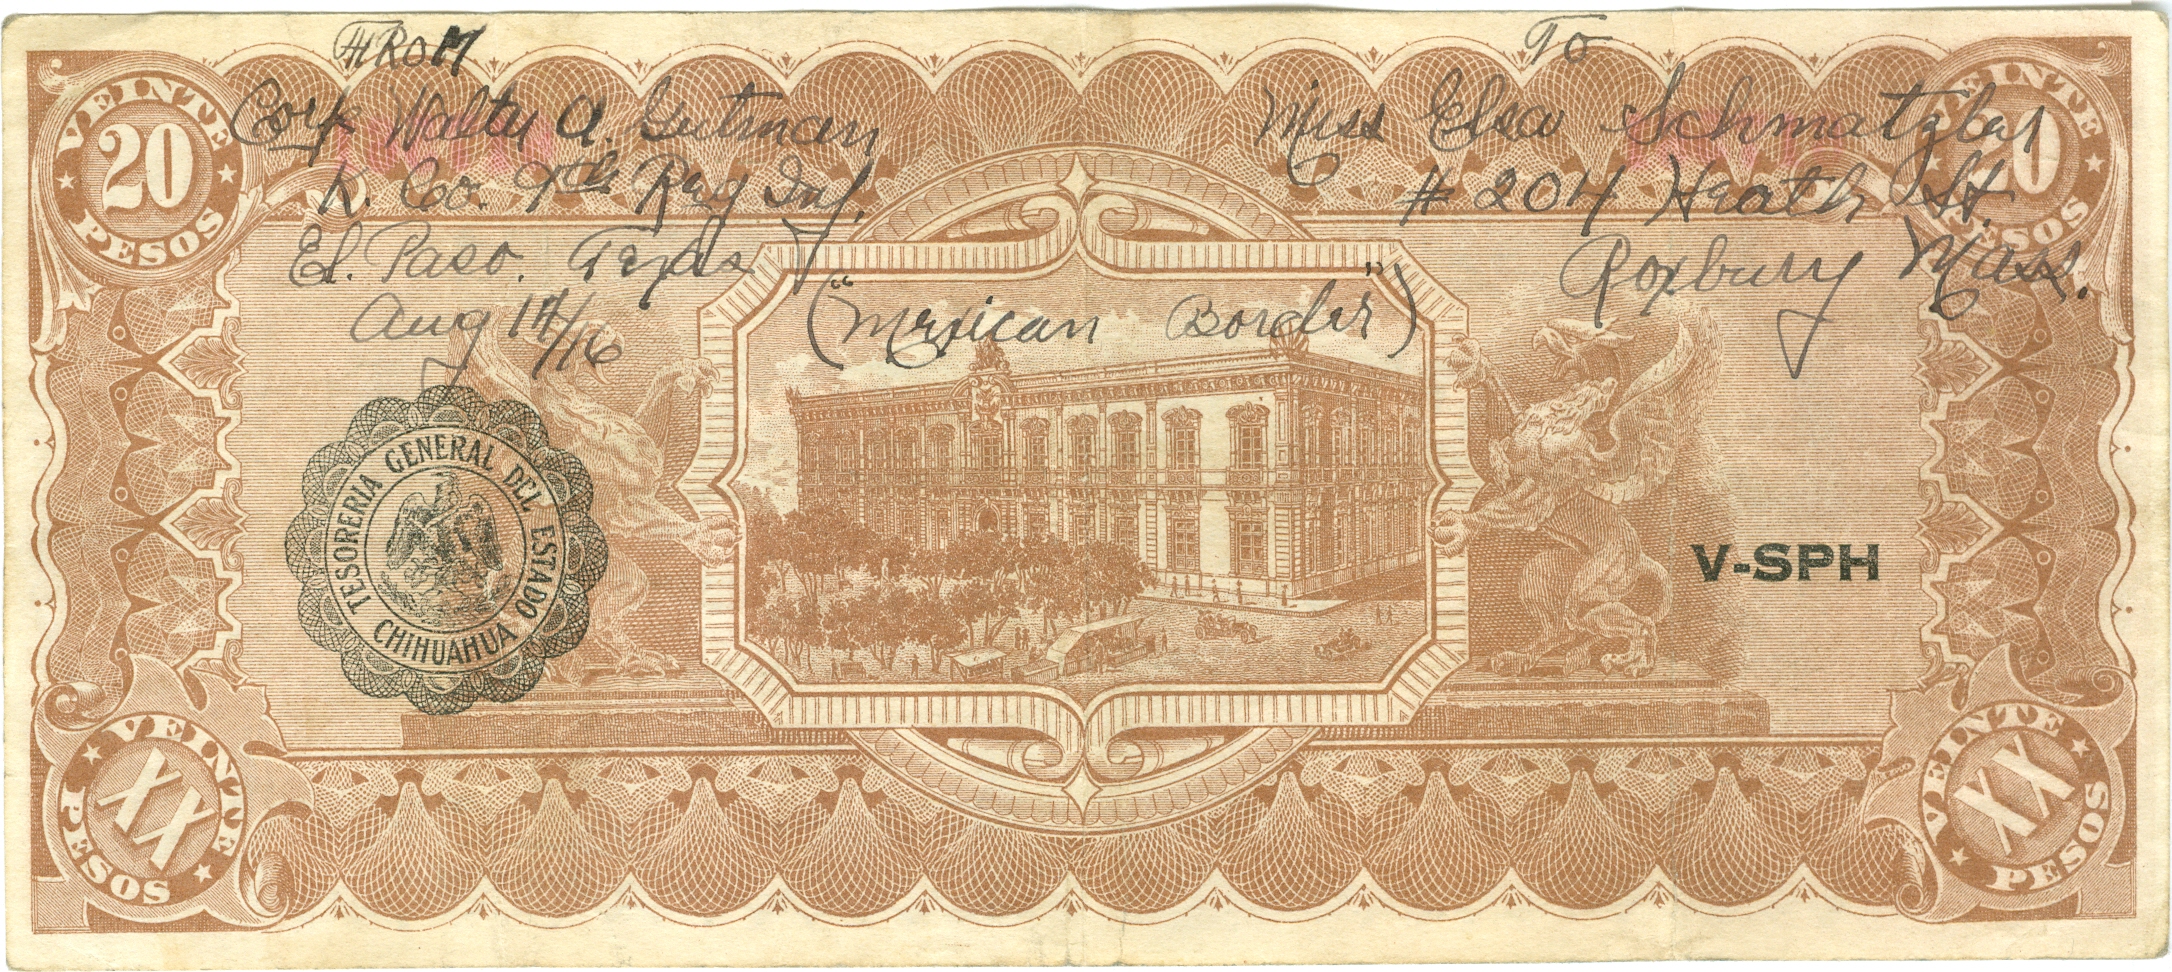 FROM
Corp Walter A. Gutman
K. Co. 9th Reg Inf.
El. Paso. Texas
Aug 14/16
("Mexican Border")
To
Miss Elsa
# 204 Heath St.
Roxbury Mass.
VEINTE
20
PESOS
VEINTE
20
PESOS
TESORERIA GENERAL DEL ESTADO
CHIHUAHUA
V-SPH
VEINTE
XX
PESOS
VEINTE
XX
PESOS